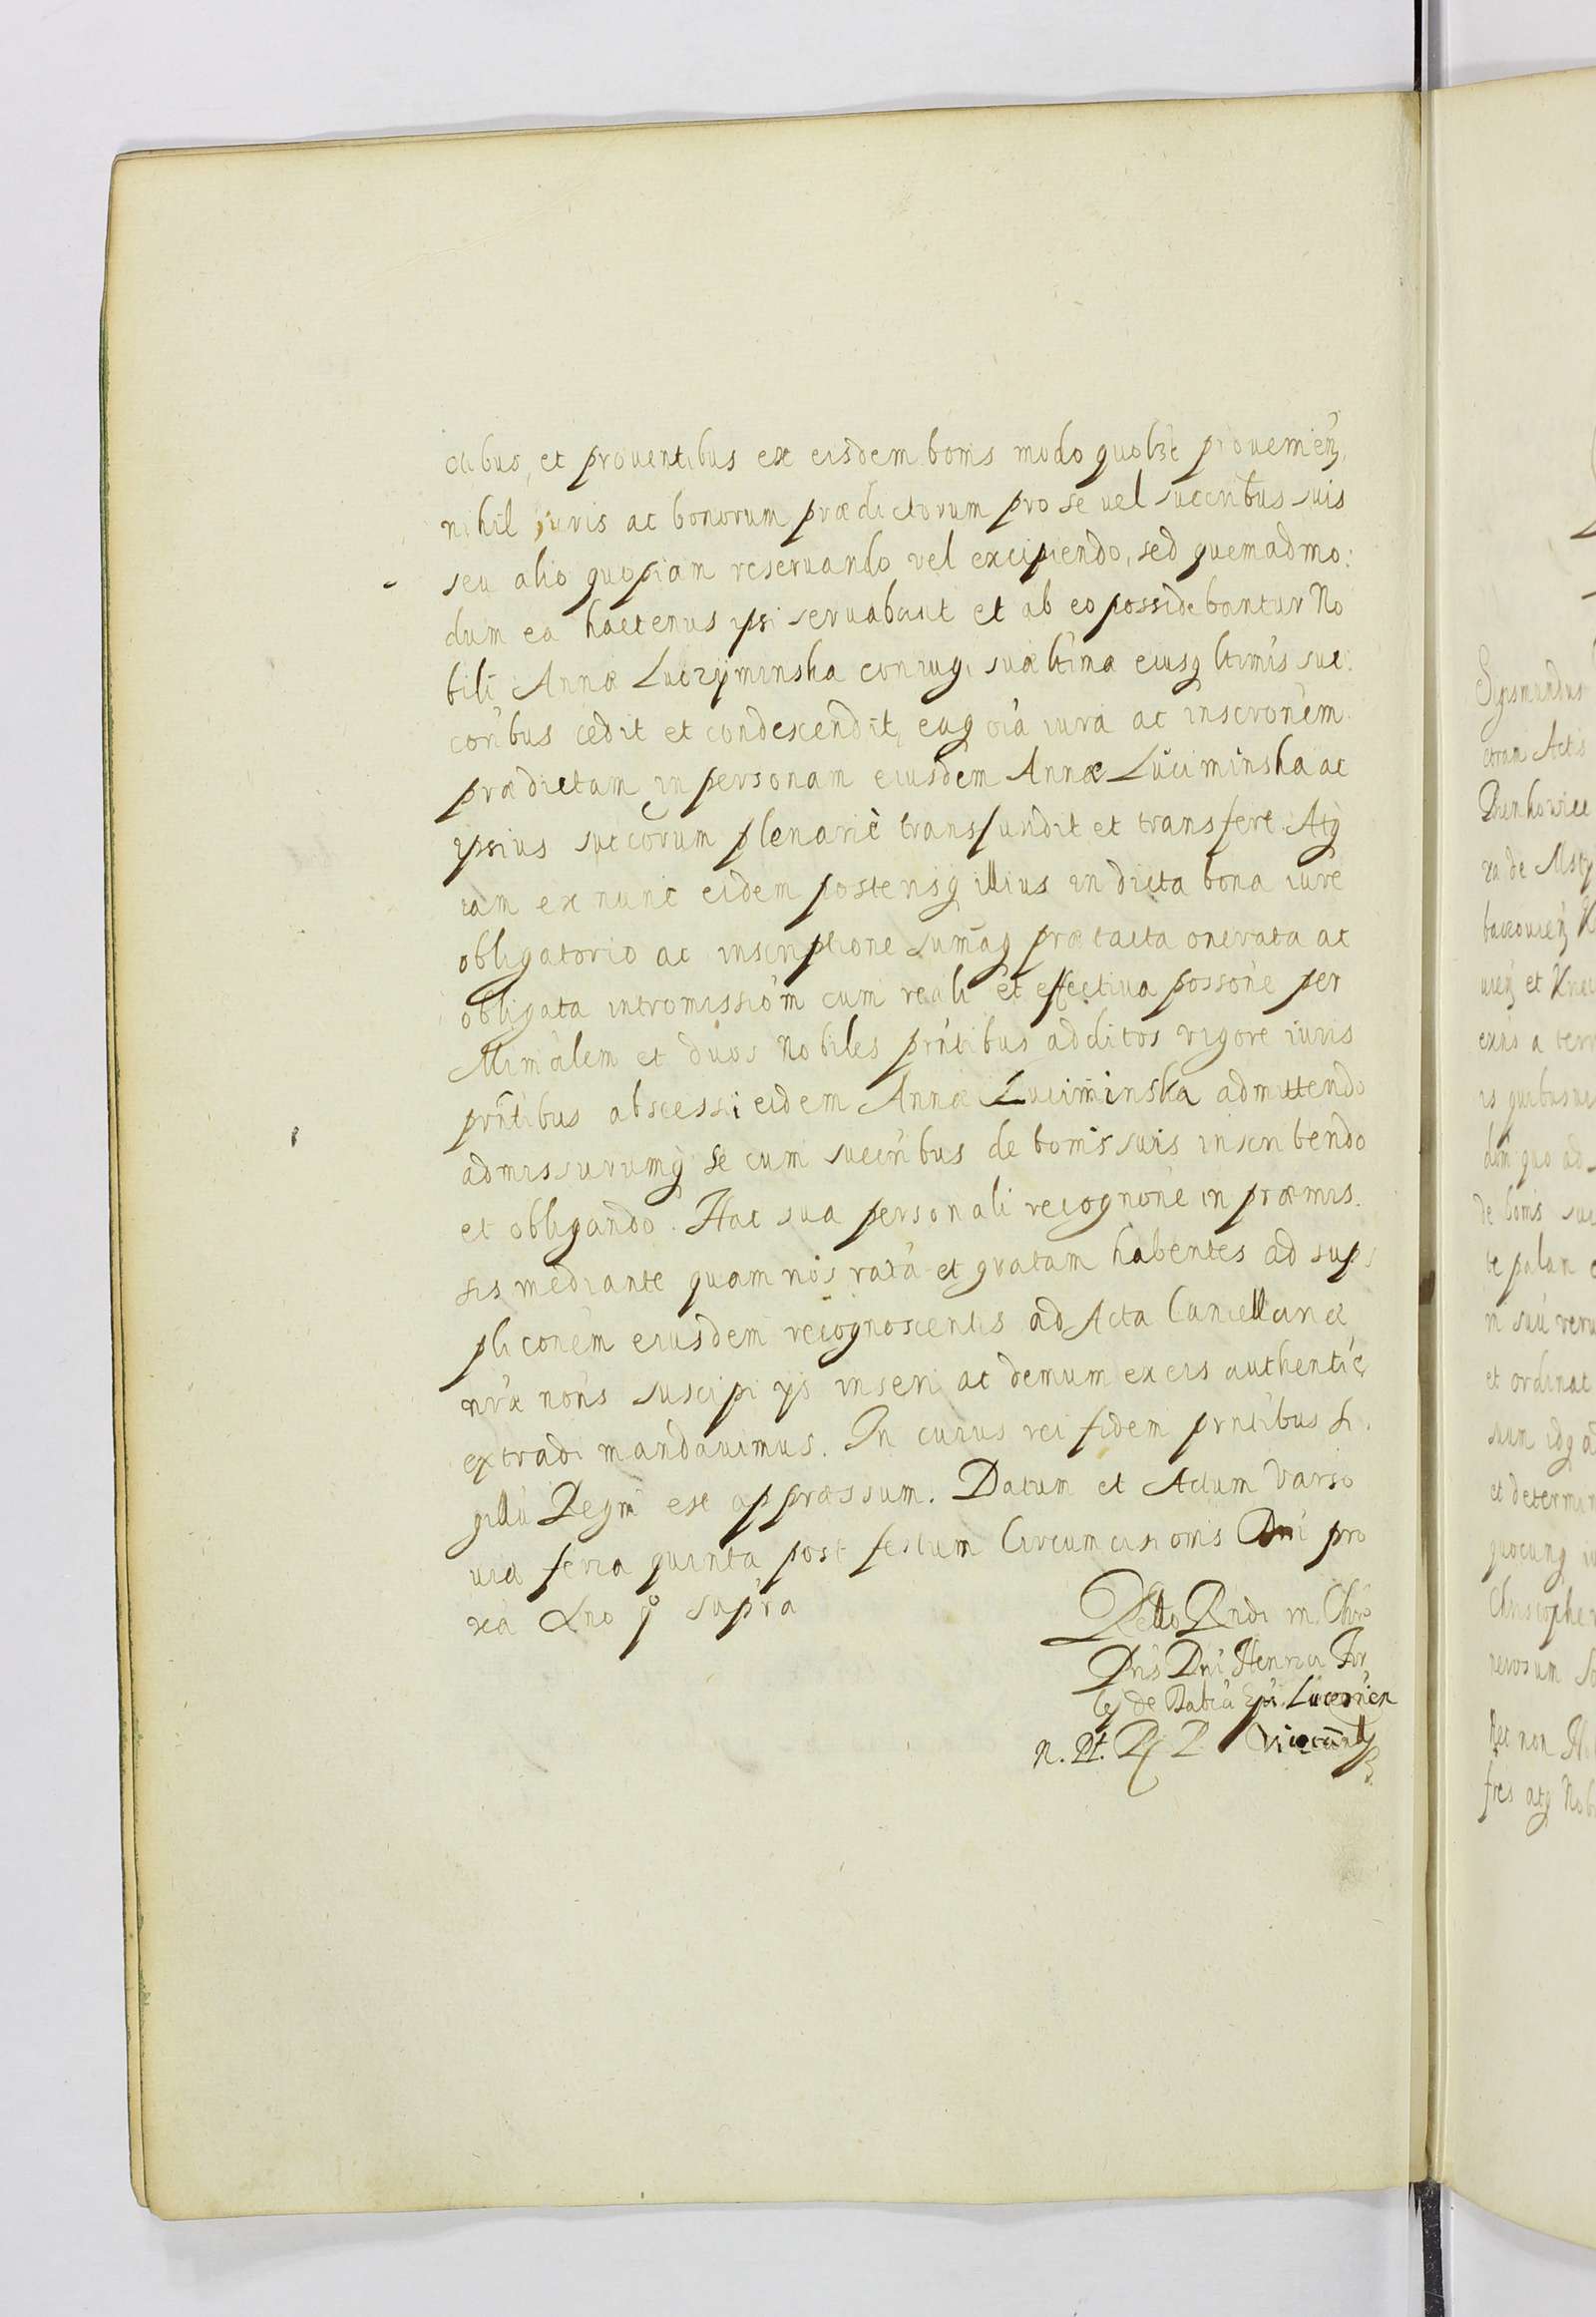 ctibus, et prouentibus ex eisdem bonis modo quolibet prouenien,
nihil iuris ac bonorum prædictorum pro se uel succribus suis
seu alio quopiam reseruando vel excipiendo, sed quemadmo:
dum ea hactenus ipsi seruabant et ab eo possidebantur No
bili Annæ Luczyminska coniugi suæ ltimæ eiusq ltimis suc:
coribus cedit et condescendit, eaq oia iura ac inscronem
prædictam in personam eiusdem Annæ Luciminska ac
ipsius succorum plenariè transfundit et transfert Atq
iam ex nunc eidem posterisq illius in dicta bona iure
obligatorio ac inscriptione sumaq prætacta onerata ac
obligata intromissiom cum reali et effectiua possone per
Minrialem et duos Nobiles prntibus additos vigore iuris
prntibus abscessi eidem Annæ Luciminska admittendo
admissurumq se cum succribus de bonis suis inscribendo
et obligando. Hac sua personali recognone in præmis.
sis mediante quam nos rata et gratam habentes ad sup
pliconem eiusdem recognoscentis ad Acta Cancellariæ
nræ nons suscipi ijs inseri ac demum ex eis authentice
extradi mandauimus. In cuius rei fidem prntibus si.
gillu Regni est appræssum. Datum et Actum Varso
uiæ feria quinta post festum Circumcisionis Dni pro
xa Ano q supra
Rello Rndi in Chro
Pris Dni Henrici Fir
lej de Dabrowica Epi Luceorien
R. P. Vicecancell
Sigismundus
coram Actis
ra de
et
exns a
is quibusuis
de bonis suis
te palam
et ordinat
sum idq
et determin
quocunq
Nec non
fres atq Nob